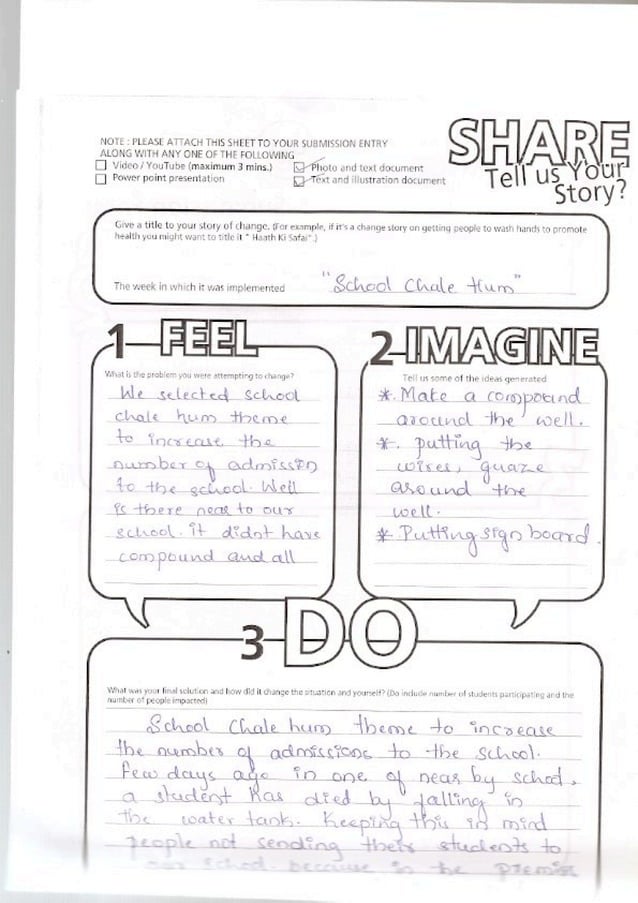 NOTE : PLEASE ATTACH THIS SHEET TO YOUR SUBMISSION ENTRY
ALONG WITH ANY ONE OF THE FOLLOWING
Video / YouTube (maximum 3 mins.)
Photo and text document
Power point presentation
Text and illustration document
SHARE
Tell us Your
Story?
Give a title to your story of change. (For example, if it's a change story on getting people to wash hands to promote
health you might want to title it " Haath Ki Safai".)
The week in which it was implemented
"School Chale Hum"
1 FEEL
What is the problem you were attempting to change?
We selected school
chale hum theme
to increase the
number of admission
to the school. Well
is there near to our
school. it didnt have
compound and all
2 IMAGINE
Tell us some of the ideas generated
*. Make a compound
around the well.
*. putting the
wires, guaze
around the
well.
* Putting sign board.
3 DO
What was your final solution and how did it change the situation and yourself? (Do include number of students participating and the
number of people impacted)
School Chale hum theme to increase
the number of admissions to the school.
Few days ago in one of near by school,
a student has died by falling in
the water tank. Keeping this in mind
people not sending their students to
our school. because in the premis